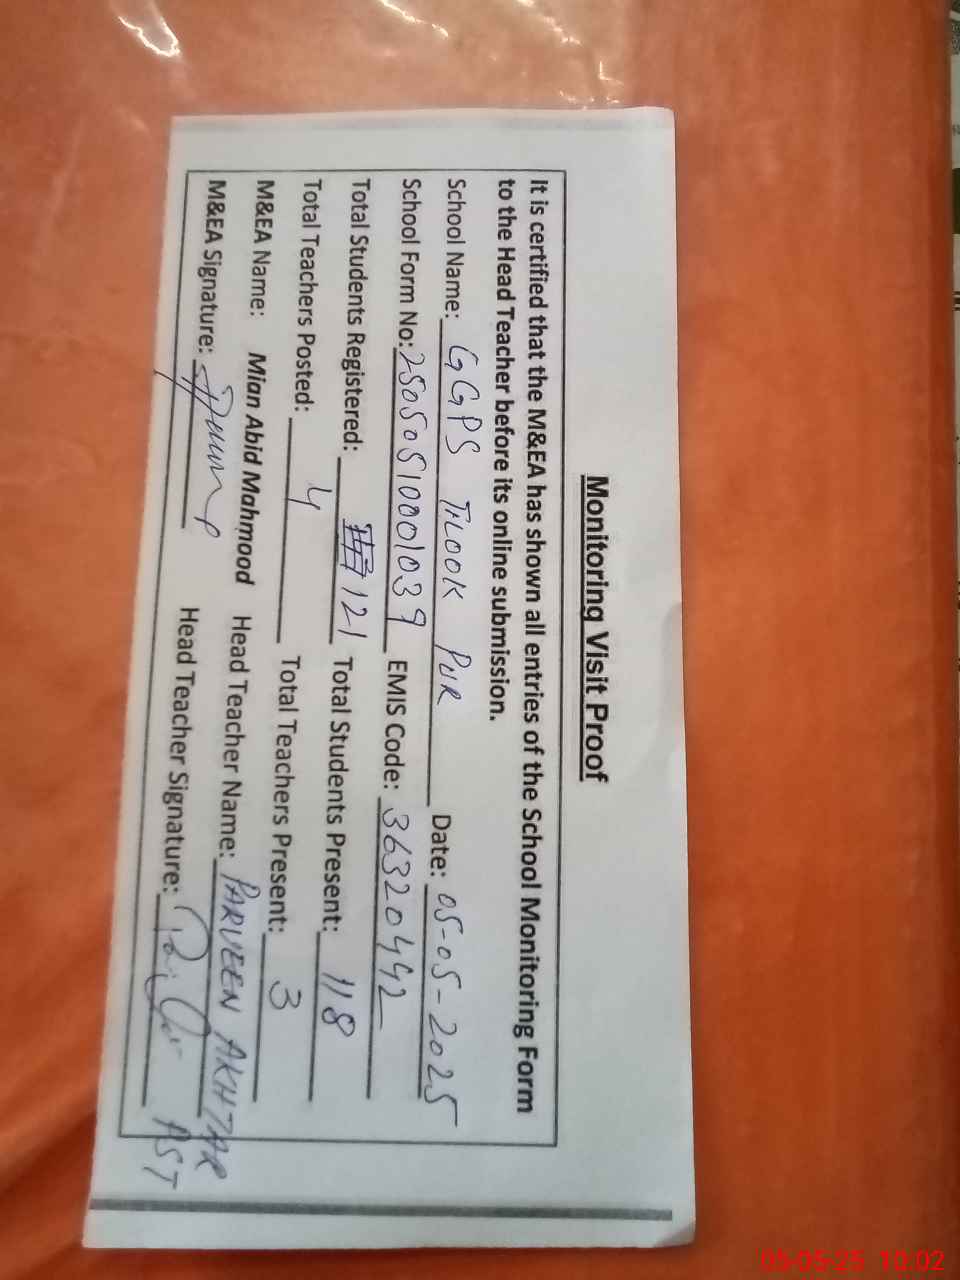 Monitoring Visit Proof
It is certified that the M&EA has shown all entries of the School Monitoring Form
to the Head Teacher before its online submission.
School Name: GGPS TILOOK PUR Date: 05-05-2025
School Form No: 25050510001039 EMIS Code: 36320492
Total Students Registered: 121 Total Students Present: 118
Total Teachers Posted: 4 Total Teachers Present: 3
M&EA Name: Mian Abid Mahmood Head Teacher Name: PARVEEN AKHTAR
M&EA Signature: Head Teacher Signature: PST
05-05-25 10:02